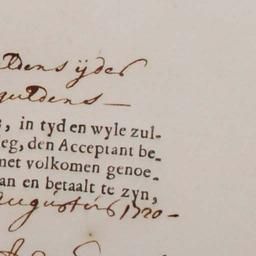 ldens yder
guldens —
, in tyd en wyle zul-
eg, den Acceptant be-
met volkomen genoe-
an en betaalt te zyn,
Augustus 1720 —